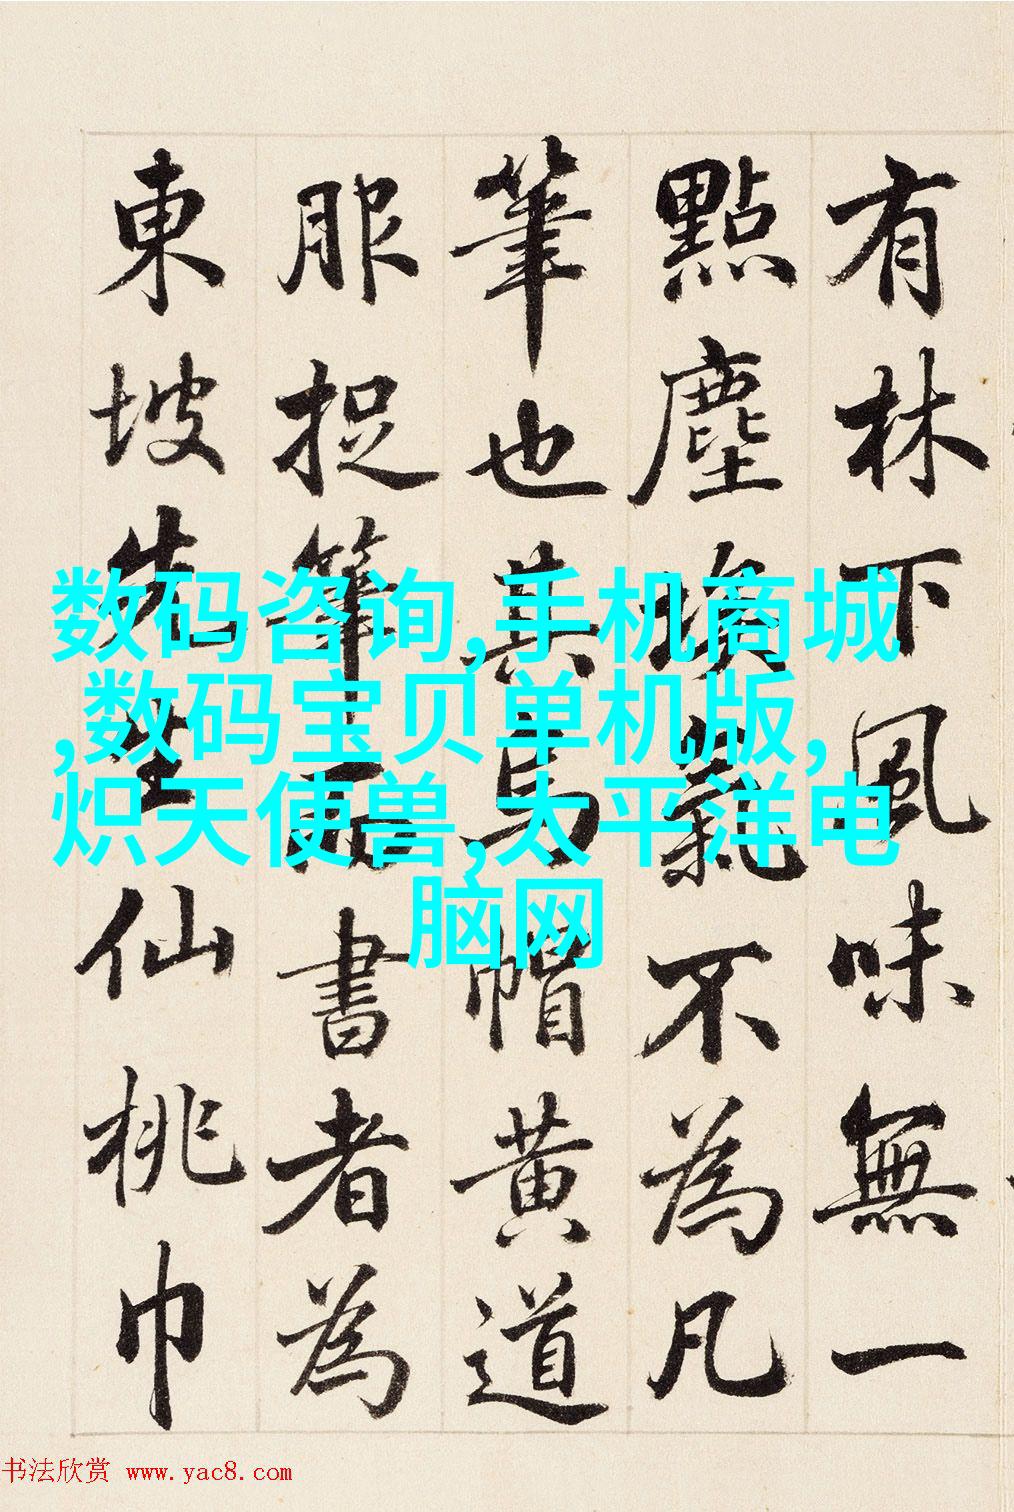 有林下風味無一
點塵埃氣不為凡
筆也其烏帽黃道
服捉筆而書者為
東坡先生仙桃巾
数码咨询,手机商城
,数码宝贝单机版,
炽天使兽,太平洋电
脑网
书法欣赏 www.yac8.com